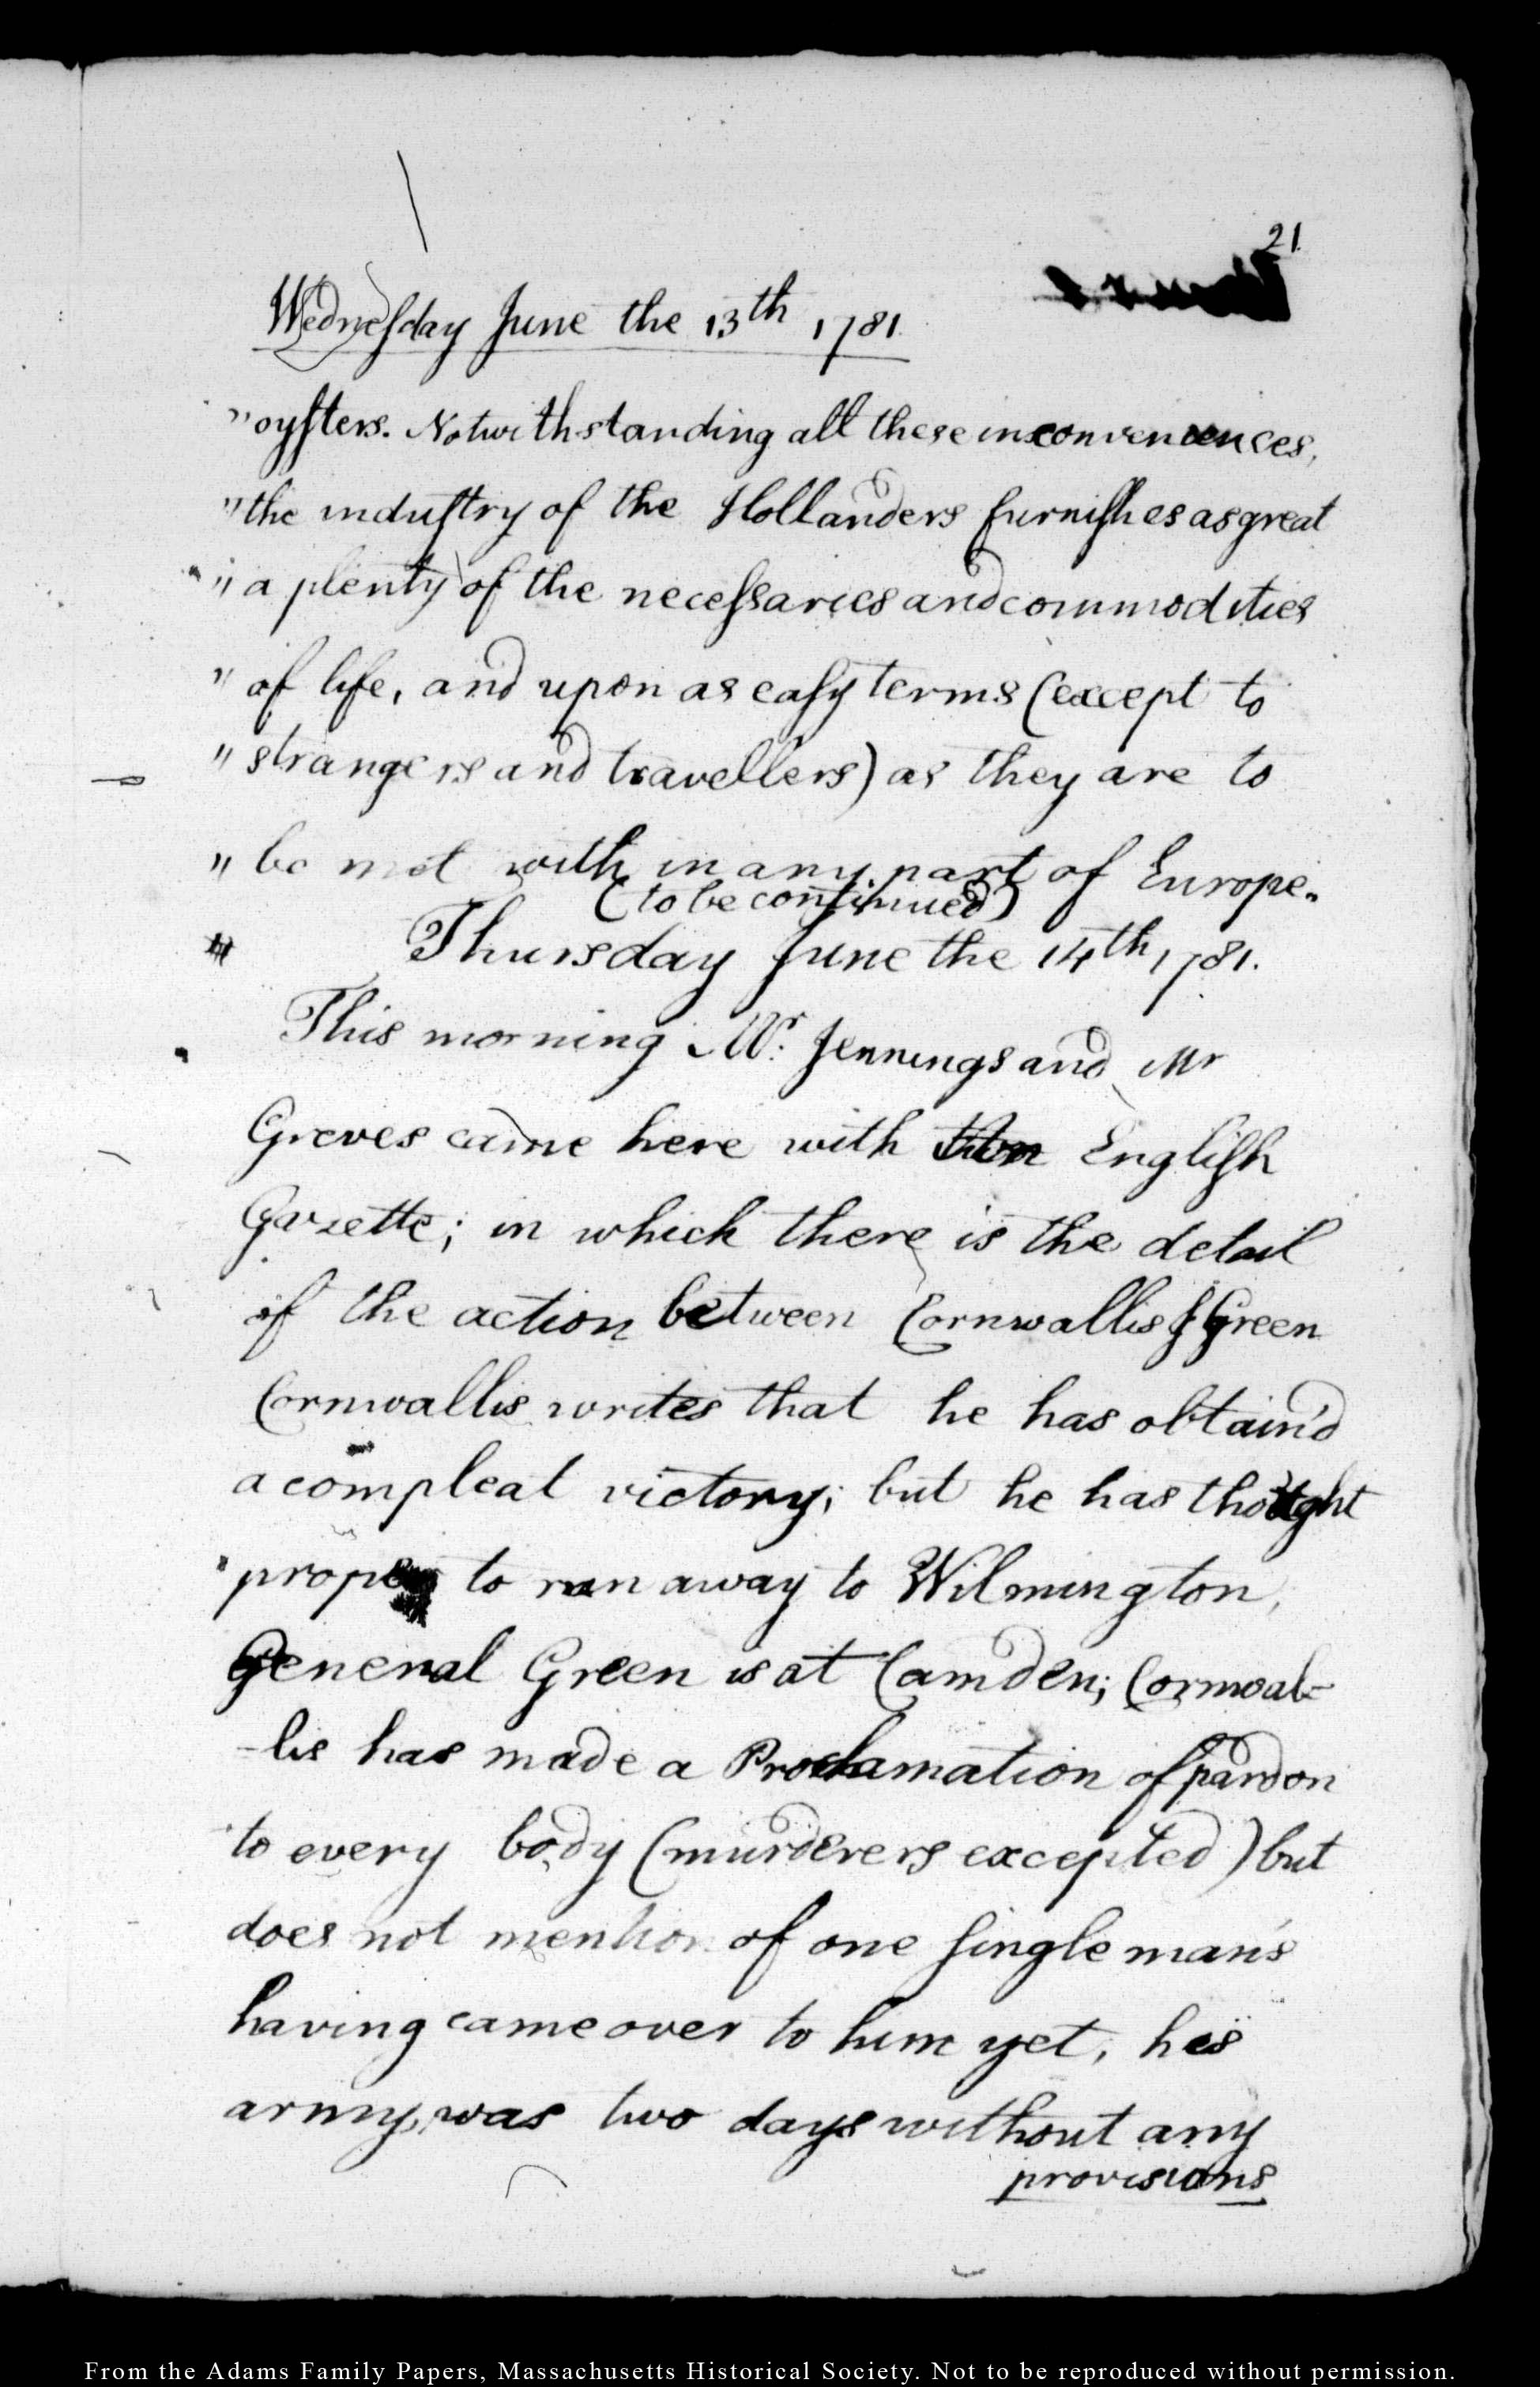 21.
Wednesday June the 13th 1781.
" oysters. Notwithstanding all these inconveniences,
" the industry of the Hollanders furnishes as great
" a plenty of the necessaries and commodities
" of life, and upon as easy terms (except to
" strangers and travellers) as they are to
" be met with in any part of Europe.
(to be continued)
Thursday June the 14th, 1781.
This morning Mr. Jennings and Mr
Greves came here with English
Gazette; in which there is the detail
of the action between Cornwallis & Green
Cornwallis writes that he has obtain'd
a compleat victory; but he has thought
proper to run away to Wilmington,
General Green is at Camden; Cornwal-
-lis has made a Proclamation of pardon
to every body (murderers excepted) but
does not mention of one single man's
having came over to him yet, his
army, was two days without any
provisions
From the Adams Family Papers, Massachusetts Historical Society. Not to be reproduced without permission.